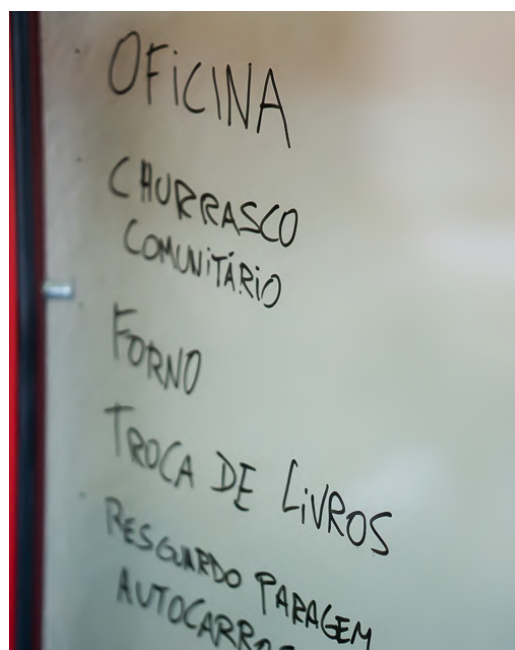 OFICINA
CHURRASCO
COMUNITÁRIO
FORNO
TROCA DE LIVROS
RESGUARDO PARAGEM
AUTOCARROS